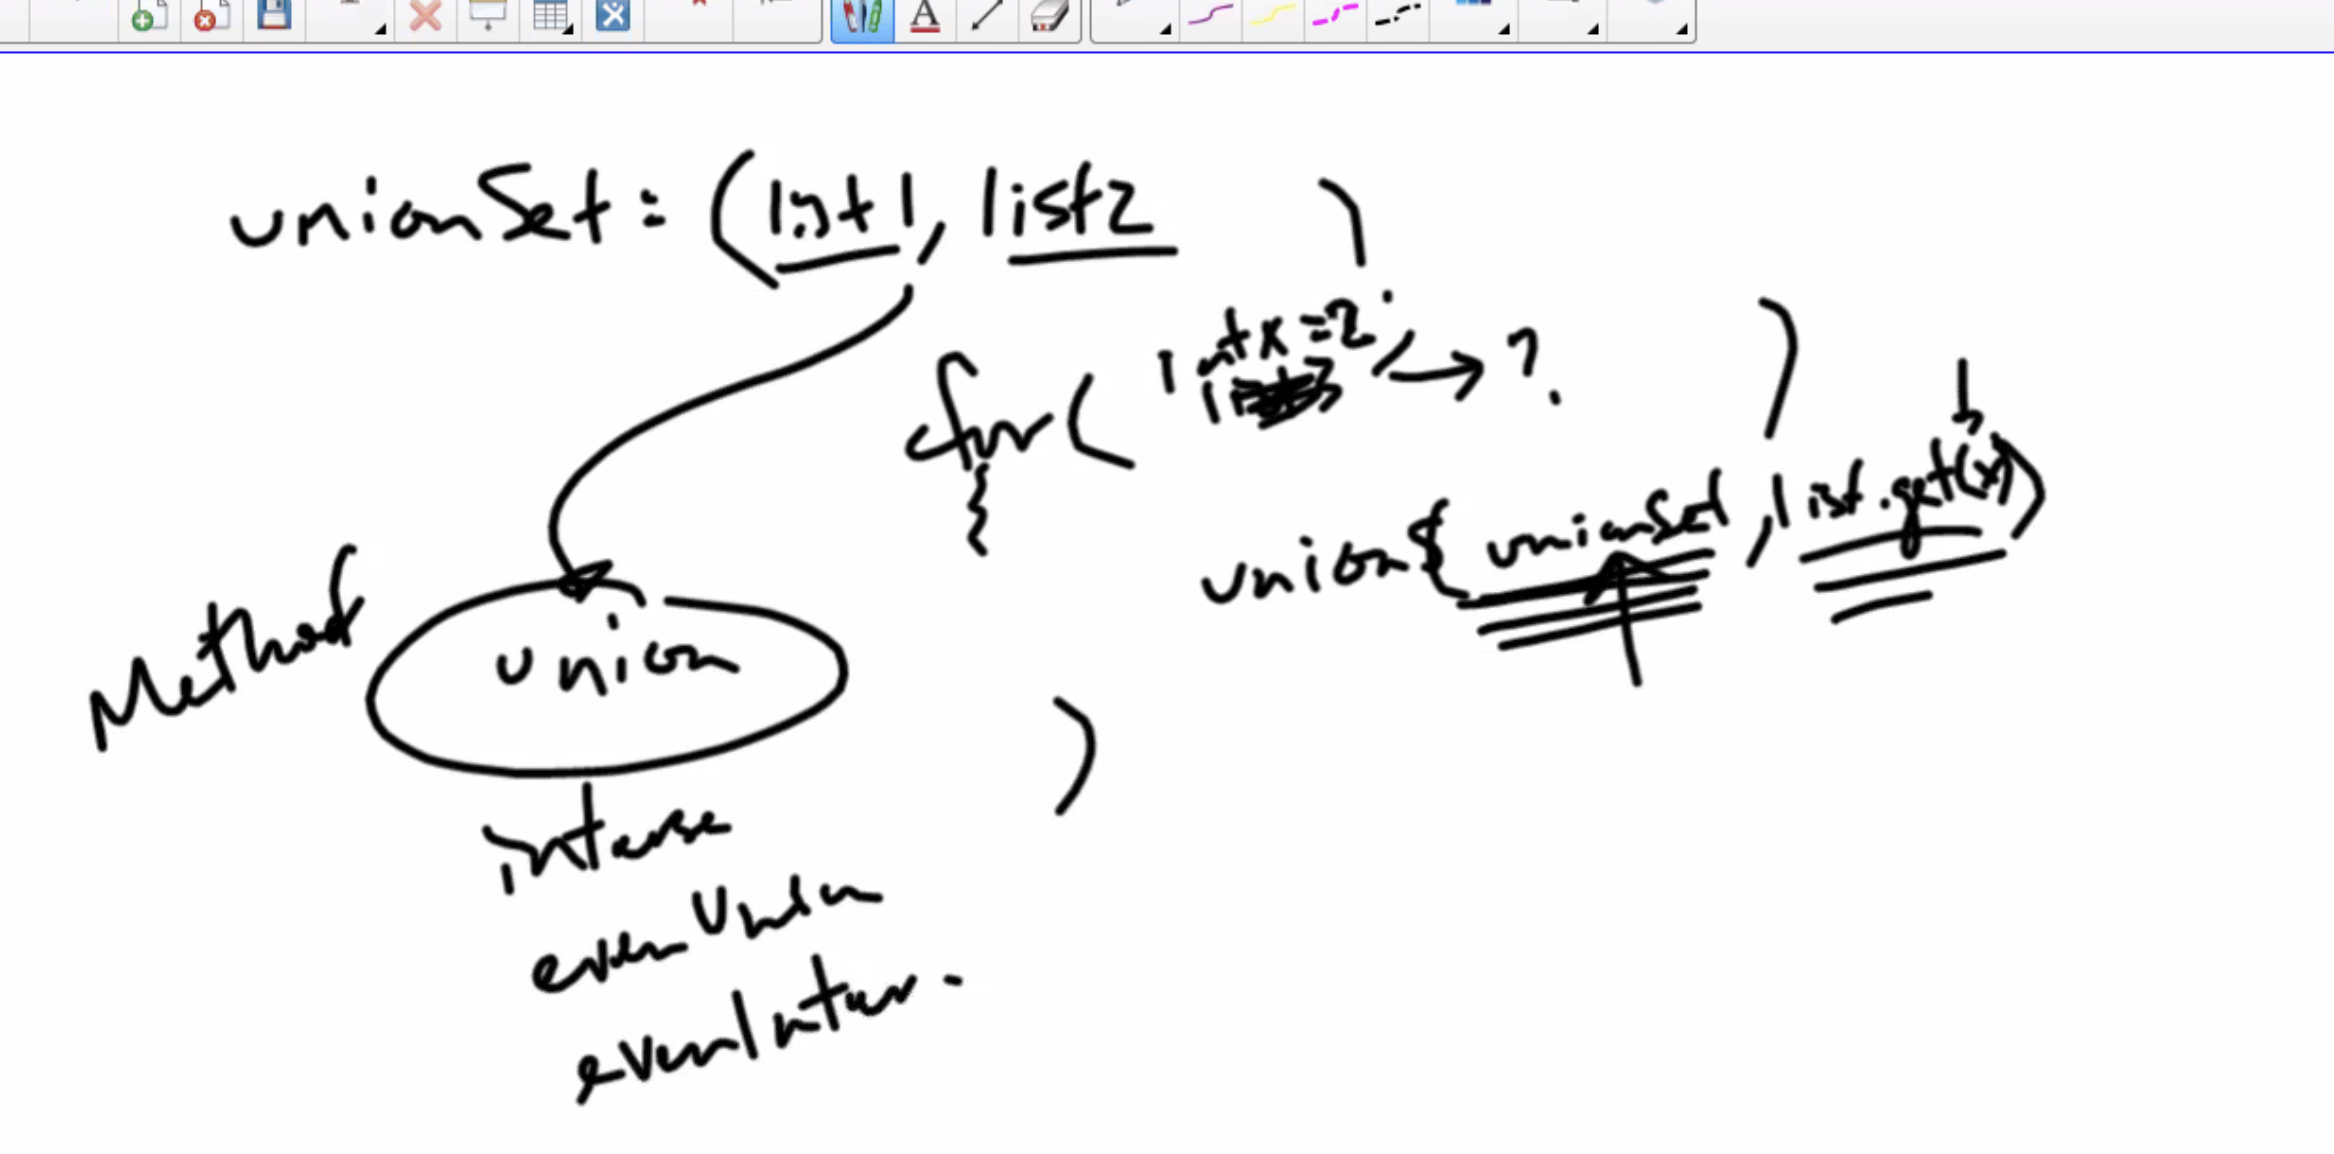 unionSet = (list1, list2 )
for( int x = 2; → ? )
{
union( unionSet, list.get(x))
Method
union
)
evenUnion
evenInter.